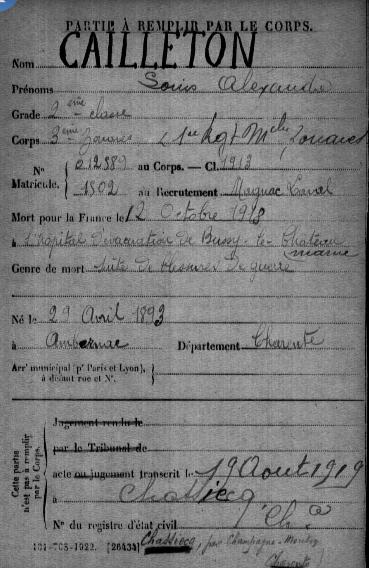 PARTIE À REMPLIR PAR LE CORPS.
Nom CAILLETON
Prénoms Louis Alexandre
Grade 2ème classe
Corps 3ème Zouaves (1er Rgt Mche Zouaves
N° Matricule. { 012389 au Corps. — Cl. 1913
1302 au Recrutement Magnac Laval
Mort pour la France le 12 Octobre 1918
à l'hôpital d'évacuation de Bussy-le-Château
marne
Genre de mort suite de blessures de guerre
Né le 29 Avril 1893
à Ambernac Département Charente
Arrt municipal (pr Paris et Lyon),
à défaut rue et N°.
Cette partie n'est pas à remplir par le Corps.
Jugement rendu le
par le Tribunal de
acte ou jugement transcrit le 19 Aout 1919
à Chassiecq
Ch te
N° du registre d'état civil
101-708-1922. [26434] Chassiecq, par Champagne-Mouton
Charente)